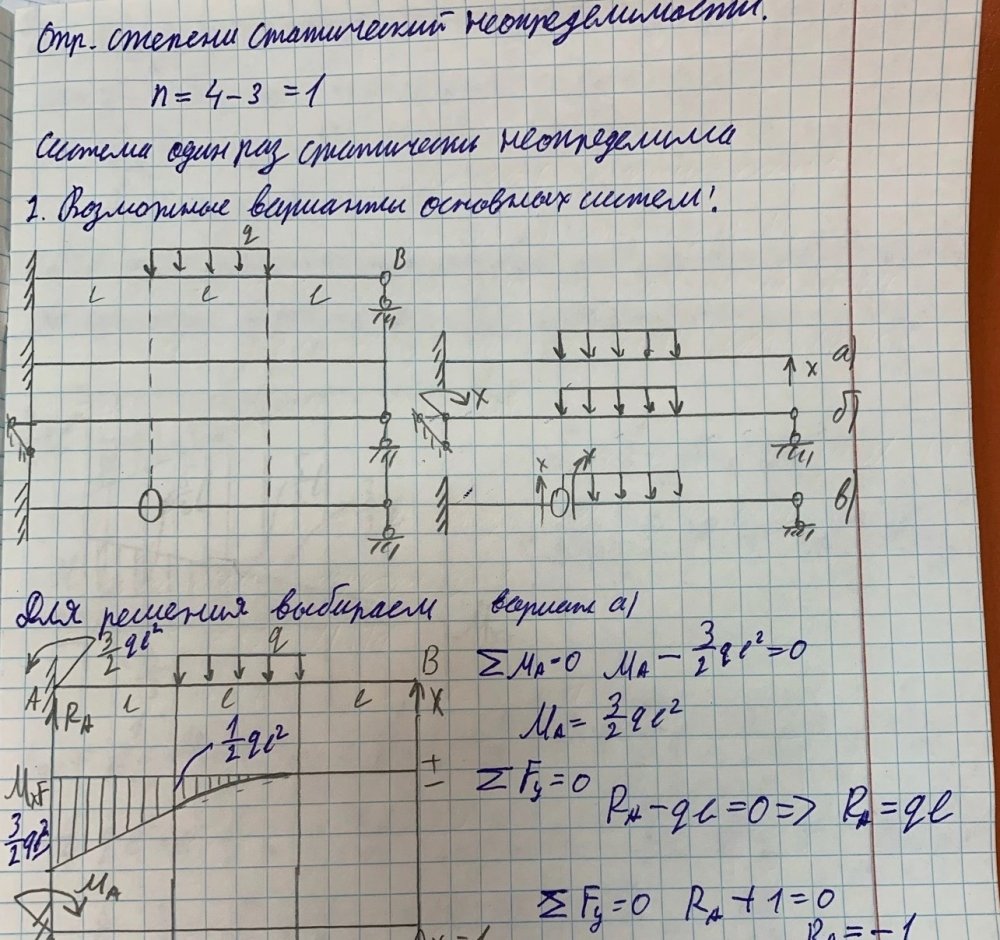 Опр. степени статический неопределимости.
n = 4 - 3 = 1
Система один раз статически неопределима
2. Возможные варианты основных систем:
q
B
l l l
а)
x
б)
X
x x
в)
Для решения выбираем вариант а)
3/2 ql²
q
A
B
l l l
R_A
X
1/2 ql²
M_xF
+
−
3/2 ql²
M_A
ΣM_A=0 M_A − 3/2 ql² = 0
M_A = 3/2 ql²
ΣF_y = 0
R_A − ql = 0 => R_A = ql
ΣF_y = 0 R_A + 1 = 0
R_A = −1